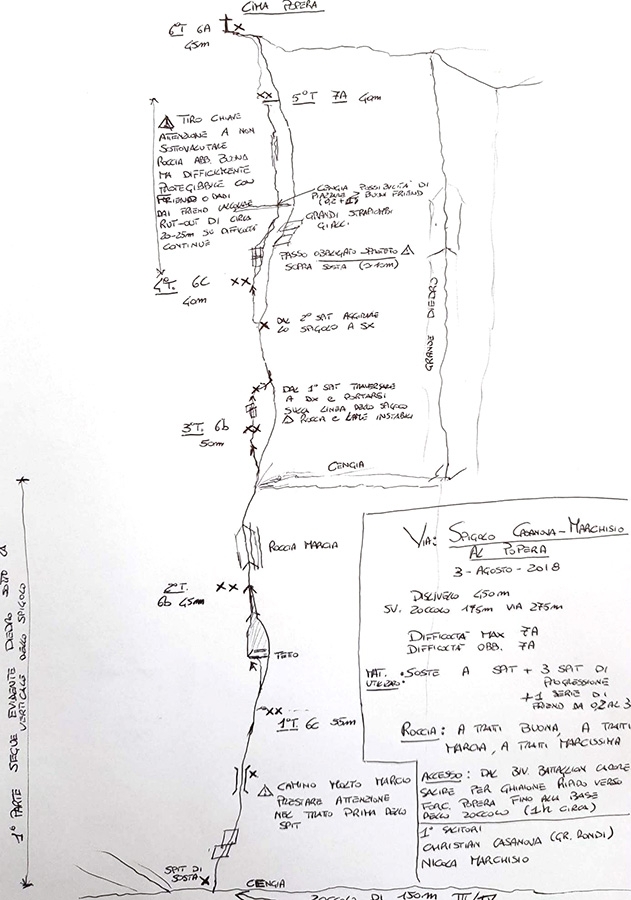 CIMA POPERA
6°T 6A
45m
5°T 7A 40m
TIRO CHIAVE
ATTENZIONE A NON
SOTTOVALUTALE
ROCCIA ABB. BUONA
MA DIFFICILMENTE
PROTEGIBBILE CON
FRIEND O DADI
DAI FRIEND
RUT-OUT DI CIRCA
20-25m SU DIFFICOLTÀ
CONTINUE
CENGIA POSSIBILITÀ DI
PIAZZARE 2 BUONI FRIEND
GRANDI STRAPIOMBI
GIALLI
PASSO OBBLIGATO
SOPRA SOSTA
4°T. 6C
40m
DAL 2° SPIT AGGIRARE
LO SPIGOLO A SX
GRANDE DIEDRO
DAL 1° SPIT TRAVERSARE
A DX E PORTARSI
SULLA LINEA DELLO SPIGOLO
ROCCIA E LAME INSTABILI
3°T. 6b
50m
CENGIA
ROCCIA MARCIA
2°T.
6b 45m
TETTO
1°T 6C 55m
CAMINO MOLTO MARCIO
PRESTARE ATTENZIONE
NEL TRATTO PRIMA DELLO
SPIT
SPIT DI
SOSTA
CENGIA
ZOCCOLO DI 150m
1° PARTE SEGUE EVIDENTE DIEDRO SOTTO LA
VERTICALE DELLO SPIGOLO
VIA: SPIGOLO CASANOVA-MARCHISIO
AL POPERA
3-AGOSTO-2018
DISLIVELO 450m
SV. ZOCCOLO 175m VIA 275m
DIFFICOLTÀ MAX 7A
DIFFICOLTÀ OBB. 7A
MAT. UTILIZZO: SOSTE A SPIT + 3 SPIT DI
PROGRESSIONE
+ 1 SERIE DI
FRIEND DA 0,2 AL 3
ROCCIA: A TRATI BUONA, A TRATI
MARCIA, A TRATI MARCISSIMA
ACCESSO: DAL BIV. BATTAGLION CADORE
SALIRE PER GHIAIONE RIPIDO VERSO
FORC. POPERA FINO ALLA BASE
DELLO ZOCCOLO (1h CIRCA)
1° SALITORI
CHRISTIAN CASANOVA (GR. RONDI)
NICOLA MARCHISIO